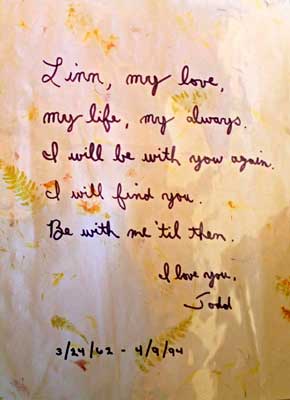 Linn, my love,
my life, my always.
I will be with you again.
I will find you.
Be with me 'til then.
I love you,
Todd
3/24/62 - 4/9/94